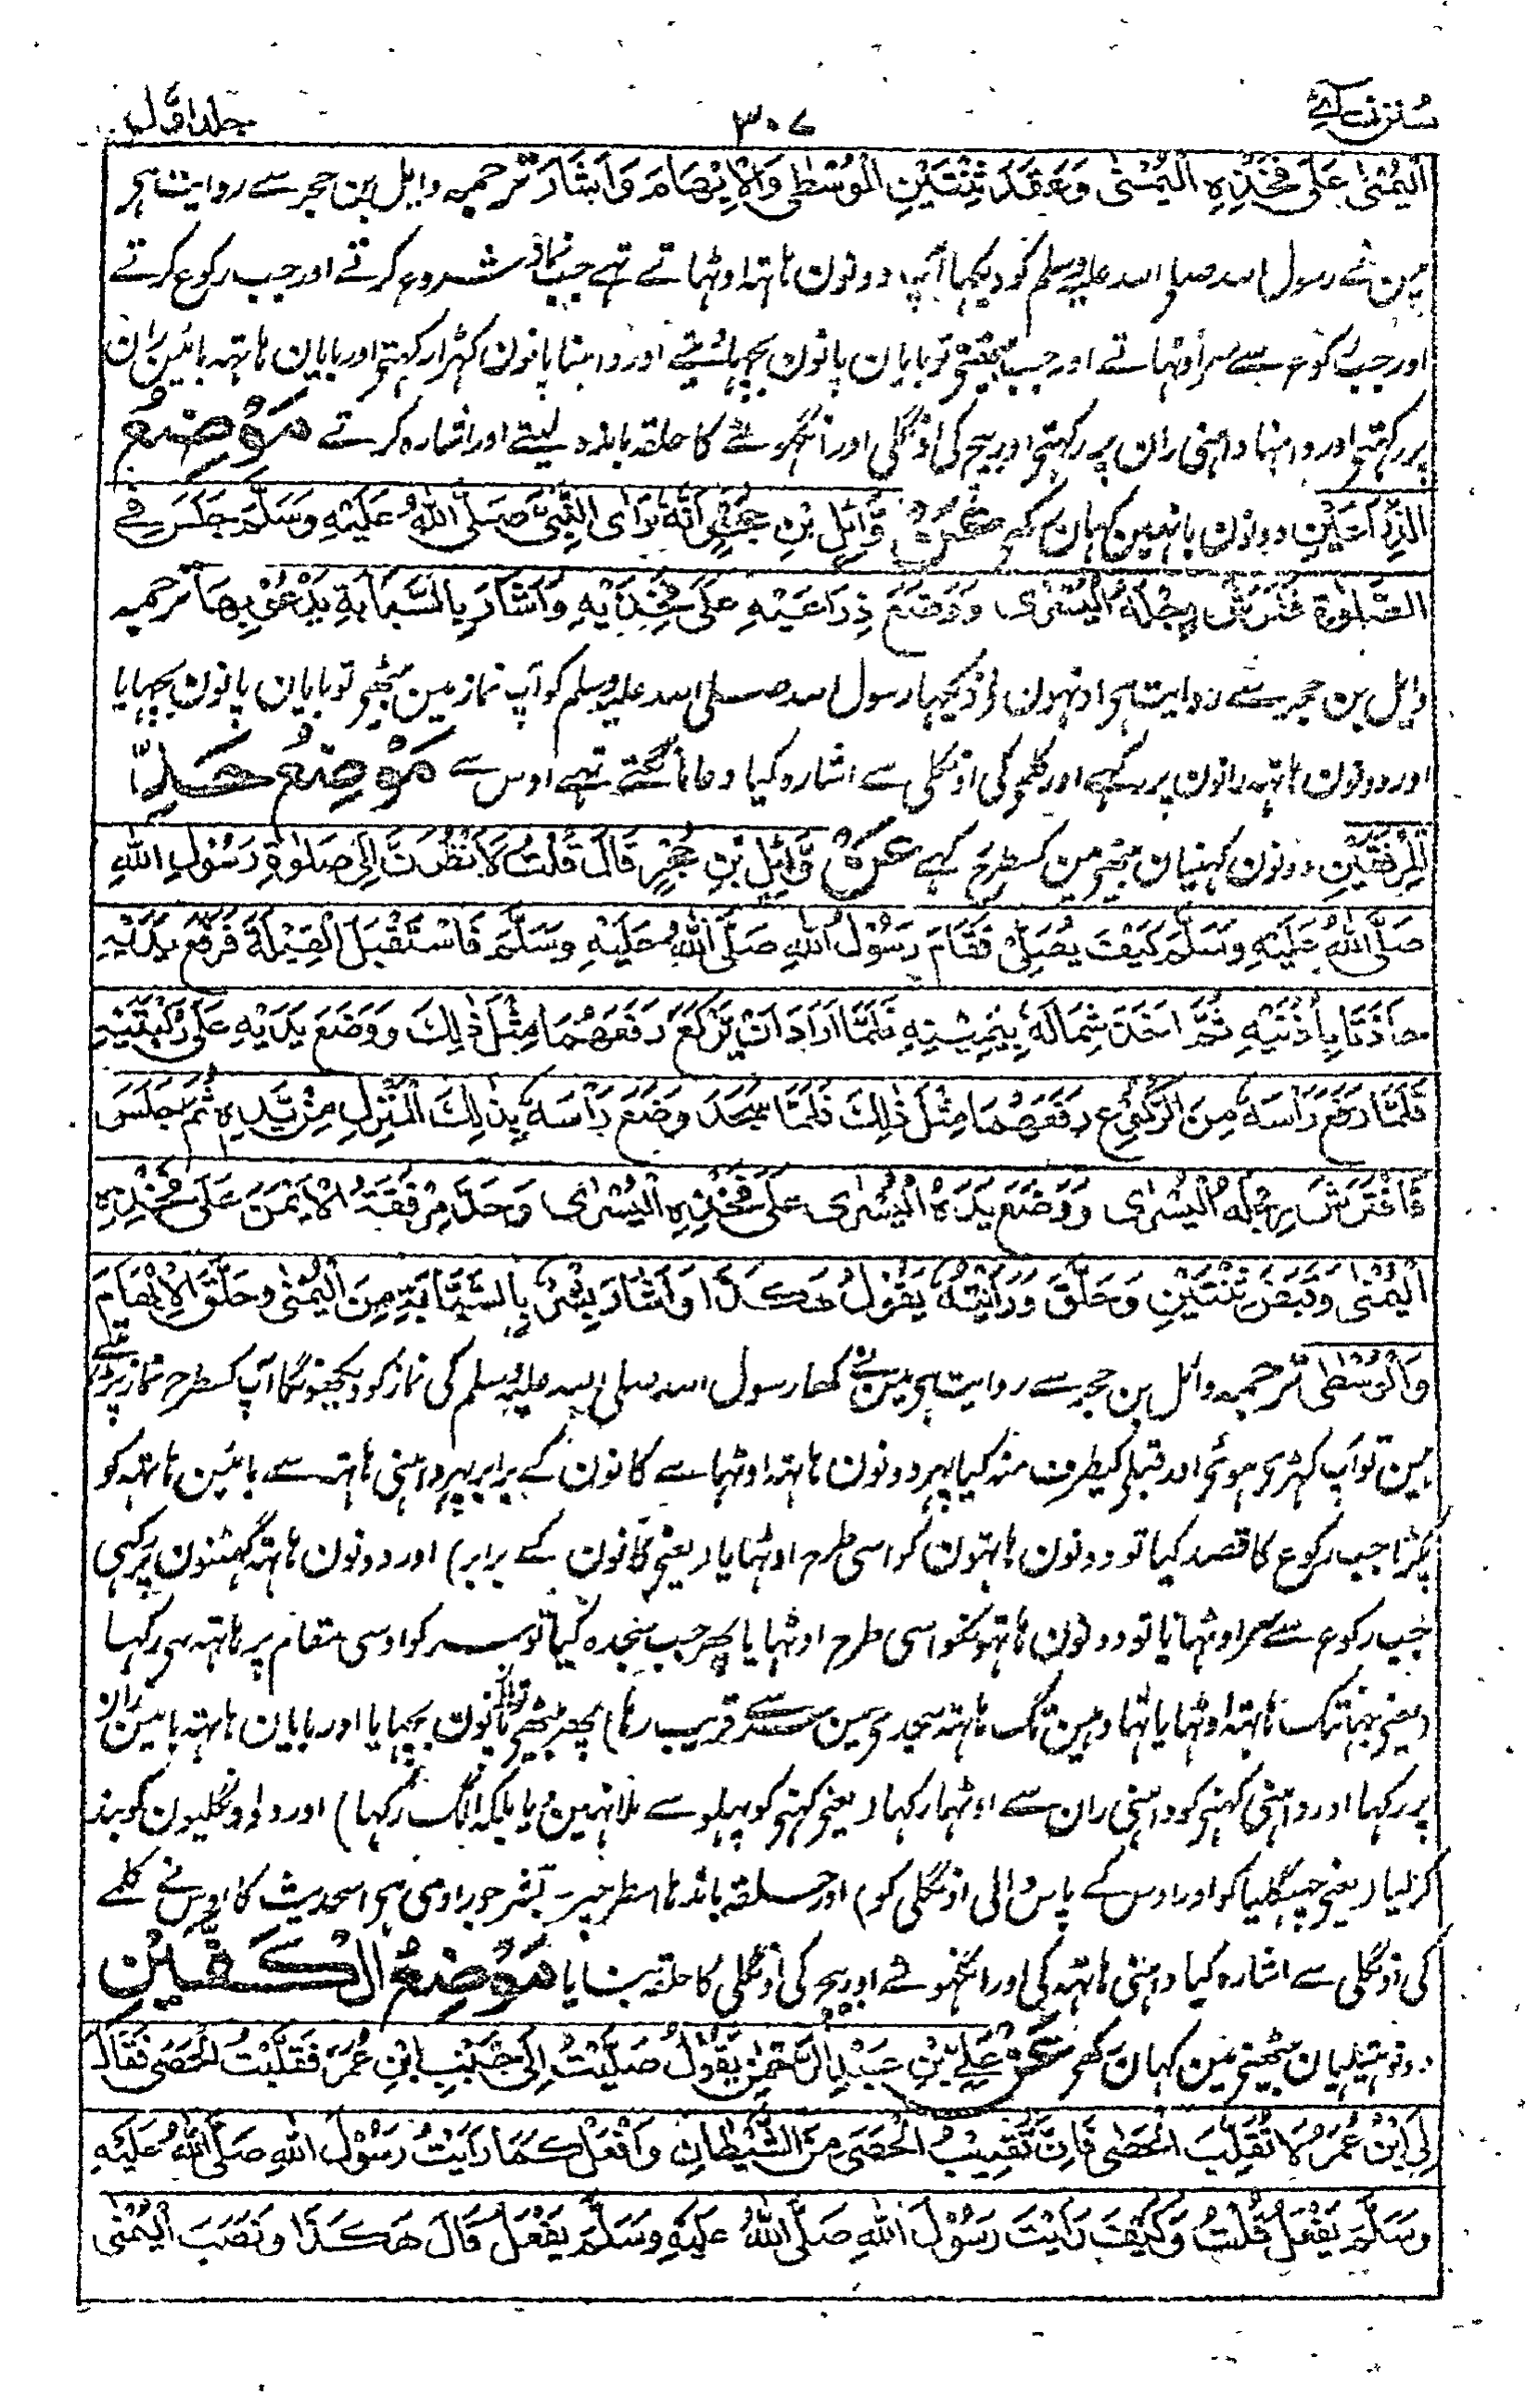 سنن نسائی ۳۰۷ جلد اول
الْيُمْنٰى عَلٰى فَخِذِهِ الْيُمْنٰى وَعَقَدَ ثِنْتَيْنِ الْوُسْطٰى وَالْاِبْهَامَ وَاَشَارَ ترجمہ وایل بن حجر سے روایت ہی
مین نے رسول اللہ صلی اللہ علیہ وسلم کو دیکہا آپ دونون ہاتہ اوٹہاتے تہے جب نماز شروع کرتے اور جب رکوع کرتے
اور جب رکوع سے سر اوٹہاتے اور جب بیٹہتے تو بایان پانون بچہاتے اور داہنا پانون کہڑا رکہتے اور بایان ہاتہ بائین ران
پر رکہتے اور داہنا داہنی ران پر رکہتے اور بیچ کی اونگلی اور انگہوٹے کا حلقہ باندہ لیتے اور اشارہ کرتے مَوْضِعُ
الذِّرَاعَيْنِ دونون بانہین کہان رکہے عَنْ وَّائِلِ بْنِ حُجْرٍ اَنَّهٗ رَاَى النَّبِيَّ صَلَّى اللّٰهُ عَلَيْهِ وَسَلَّمَ جَلَسَ فِي
الصَّلٰوةِ فَفَرَشَ رِجْلَهُ الْيُسْرٰى وَوَضَعَ ذِرَاعَيْهِ عَلٰى فَخِذَيْهِ وَاَشَارَ بِالسَّبَّابَةِ يَدْعُوْ بِهَا ترجمہ
وایل بن حجر سے روایت ہی اونہون نے دیکہا رسول اللہ صلی اللہ علیہ وسلم کو آپ نماز مین بیٹہے تو بایان پانون بچہایا
اور دونون ہاتہ رانون پر رکہے اور کلمے کی اونگلی سے اشارہ کیا دعا مانگتے تہے اوس سے مَوْضِعُ حَدِّ
الْمِرْفَقَيْنِ دونون کہنیان بیٹہنے مین کسطرح رکہے عَنْ وَّائِلِ بْنِ حُجْرٍ قَالَ قُلْتُ لَاَنْظُرَنَّ اِلٰى صَلٰوةِ رَسُوْلِ اللّٰهِ
صَلَّى اللّٰهُ عَلَيْهِ وَسَلَّمَ كَيْفَ يُصَلِّيْ فَقَامَ رَسُوْلُ اللّٰهِ صَلَّى اللّٰهُ عَلَيْهِ وَسَلَّمَ فَاسْتَقْبَلَ الْقِبْلَةَ فَرَفَعَ يَدَيْهِ
حَاذَتَا بِاُذُنَيْهِ ثُمَّ اَخَذَ شِمَالَهٗ بِيَمِيْنِهٖ فَلَمَّا اَرَادَ اَنْ يَّرْكَعَ رَفَعَهُمَا مِثْلَ ذٰلِكَ وَوَضَعَ يَدَيْهِ عَلٰى رُكْبَتَيْهِ
فَلَمَّا رَفَعَ رَاْسَهٗ مِنَ الرُّكُوْعِ رَفَعَهُمَا مِثْلَ ذٰلِكَ فَلَمَّا سَجَدَ وَضَعَ رَاْسَهٗ بِذٰلِكَ الْمَنْزِلِ مِنْ يَّدَيْهِ ثُمَّ جَلَسَ
فَافْتَرَشَ رِجْلَهُ الْيُسْرٰى وَوَضَعَ يَدَهُ الْيُسْرٰى عَلٰى فَخِذِهِ الْيُسْرٰى وَحَدَّ مِرْفَقَهُ الْاَيْمَنَ عَلٰى فَخِذِهِ
الْيُمْنٰى وَقَبَضَ ثِنْتَيْنِ وَحَلَّقَ وَرَاَيْتُهٗ يَقُوْلُ هٰكَذَا وَاَشَارَ بِشْرٌ بِالسَّبَّابَةِ مِنَ الْيُمْنٰى وَحَلَّقَ الْاِبْهَامَ
وَالْوُسْطٰى ترجمہ وائل بن حجر سے روایت ہی مین نے کہا رسول اللہ صلی اللہ علیہ وسلم کی نماز کو دیکہونگا آپ کسطرح نماز پڑہتے
ہین تو آپ کہڑی ہوئی اور قبلے کیطرف منہ کیا پہر دونون ہاتہ اوٹہائے کانون کے برابر پہر داہنی ہاتہ سے بائین ہاتہ کو
پکڑا جب رکوع کا قصد کیا تو دونون ہاتہون کو اسی طرح اوٹہایا (یعنی کانون کے برابر) اور دونون ہاتہ گہٹنون پر رکہی
جب رکوع سے سر اوٹہایا تو دونون ہاتہونکو اسی طرح اوٹہایا پہر جب سجدہ کیا تو سر کو اوسی مقام پر ہاتہ سے رکہا
(یعنی جہانتک ہاتہ اوٹہایا تہا وہین تک ہاتہ سجدے مین سر کے قریب رہا) پہر بیٹہے تو پانون بچہایا اور بایان ہاتہ بائین ران
پر رکہا اور داہنی کہنی کو داہنی ران سے اوٹہا رکہا (یعنی کہنی کو پہلو سے ملا نہین دیا بلکہ الگ رکہا) اور دو اونگلیون کو بند
کر لیا (یعنی چہنگلیا کو اور اوس کے پاس والی اونگلی کو) اور حلقہ باندہا اسطرح پر بشر جو راوی ہی اسحدیث کا اوس نے کلمے
کی اونگلی سے اشارہ کیا داہنی ہاتہ کی اور انگہوٹے اور بیچ کی اونگلی کا حلقہ بنایا مَوْضِعُ الْكَفَّيْنِ
دونو ہتیلیان بیٹہنے مین کہان رکہے عَنْ عَلِيِّ بْنِ عَبْدِ الرَّحْمٰنِ يَقُوْلُ صَلَّيْتُ اِلٰى جَنْبِ ابْنِ عُمَرَ فَقَلَّبْتُ الْحَصٰى فَقَالَ
لِي ابْنُ عُمَرَ لَا تُقَلِّبِ الْحَصٰى فَاِنَّ تَقْلِيْبَ الْحَصٰى مِنَ الشَّيْطَانِ وَافْعَلْ كَمَا رَاَيْتُ رَسُوْلَ اللّٰهِ صَلَّى اللّٰهُ عَلَيْهِ
وَسَلَّمَ يَفْعَلُ قُلْتُ وَكَيْفَ رَاَيْتَ رَسُوْلَ اللّٰهِ صَلَّى اللّٰهُ عَلَيْهِ وَسَلَّمَ يَفْعَلُ قَالَ هٰكَذَا وَنَصَبَ الْيُمْنٰى